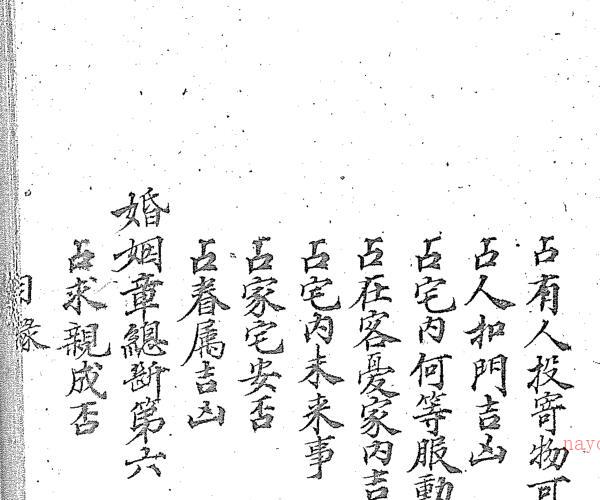 占有人投寄物可
占人扣門吉凶
占宅内何等服動
占在客憂家内吉
占宅内未来事
占家宅安否
占眷属吉凶
婚姻章總断第六
占求親成否
目録
nayo